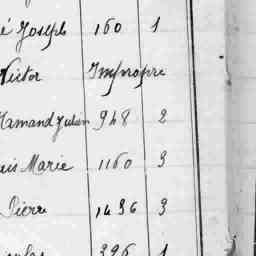 é Joseph 160 1
Victor Impropre
Hamand Julien 948 2
uis Marie 1160 3
Pierre 1436 3
396 1